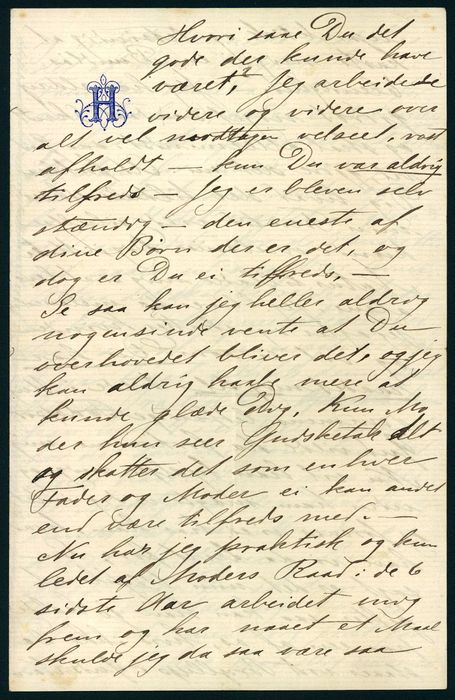 Hvori saae Du det
gode der kunde have
været, Jeg arbeidede
H
videre og videre over
alt vel modtagen velseet, vast
afholdt — kun Du var aldrig
tilfreds — Jeg er bleven selv
stændig — den eneste af
dine Børn der er det, og
dog er Du ei tilfreds, —
Se saa kan jeg heller aldrig
nogensinde vente at Du
overhovedet bliver det, og jeg
kan aldrig haabe mere at
kunde glæde Dig. Kun Mo
der hun seer Gudsketak Alt
og skatter det som enhver
Fader og Moder ei kan andet
end være tilfreds med. —
Nu har jeg praktisk og kun
ledet af Moders Raad i de 6
sidste Aar arbeidet mig
frem og har naaet et Maal
skulde jeg da saa være saa